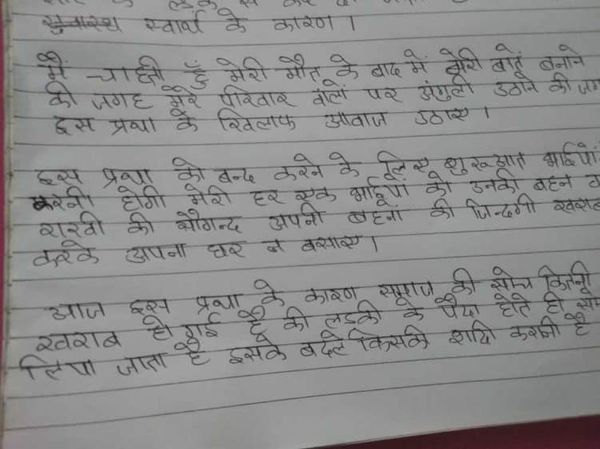 स्वार्थ के कारण ।
मैं चाहती हूँ मेरी मौत के बाद में मेरी बातें बनाने
की जगह मेरे परिवार वालो पर अंगुली उठाने की जग
इस प्रथा के खिलाफ आवाज उठाए ।
इस प्रथा को बन्द करने के लिए शुरूआत भाईयों
करनी होगी मेरी हर एक भाईयों को उनकी बहन
राखी की सौगन्द अपनी बहनों की जिन्दगी खराब
करके अपना घर न बसाए ।
आज इस प्रथा के कारण समाज की सोच कितनी
खराब हो गई है की लडकी के पैदा होते ही
लिया जाता है इसके बदले किसकी शादि करानी है